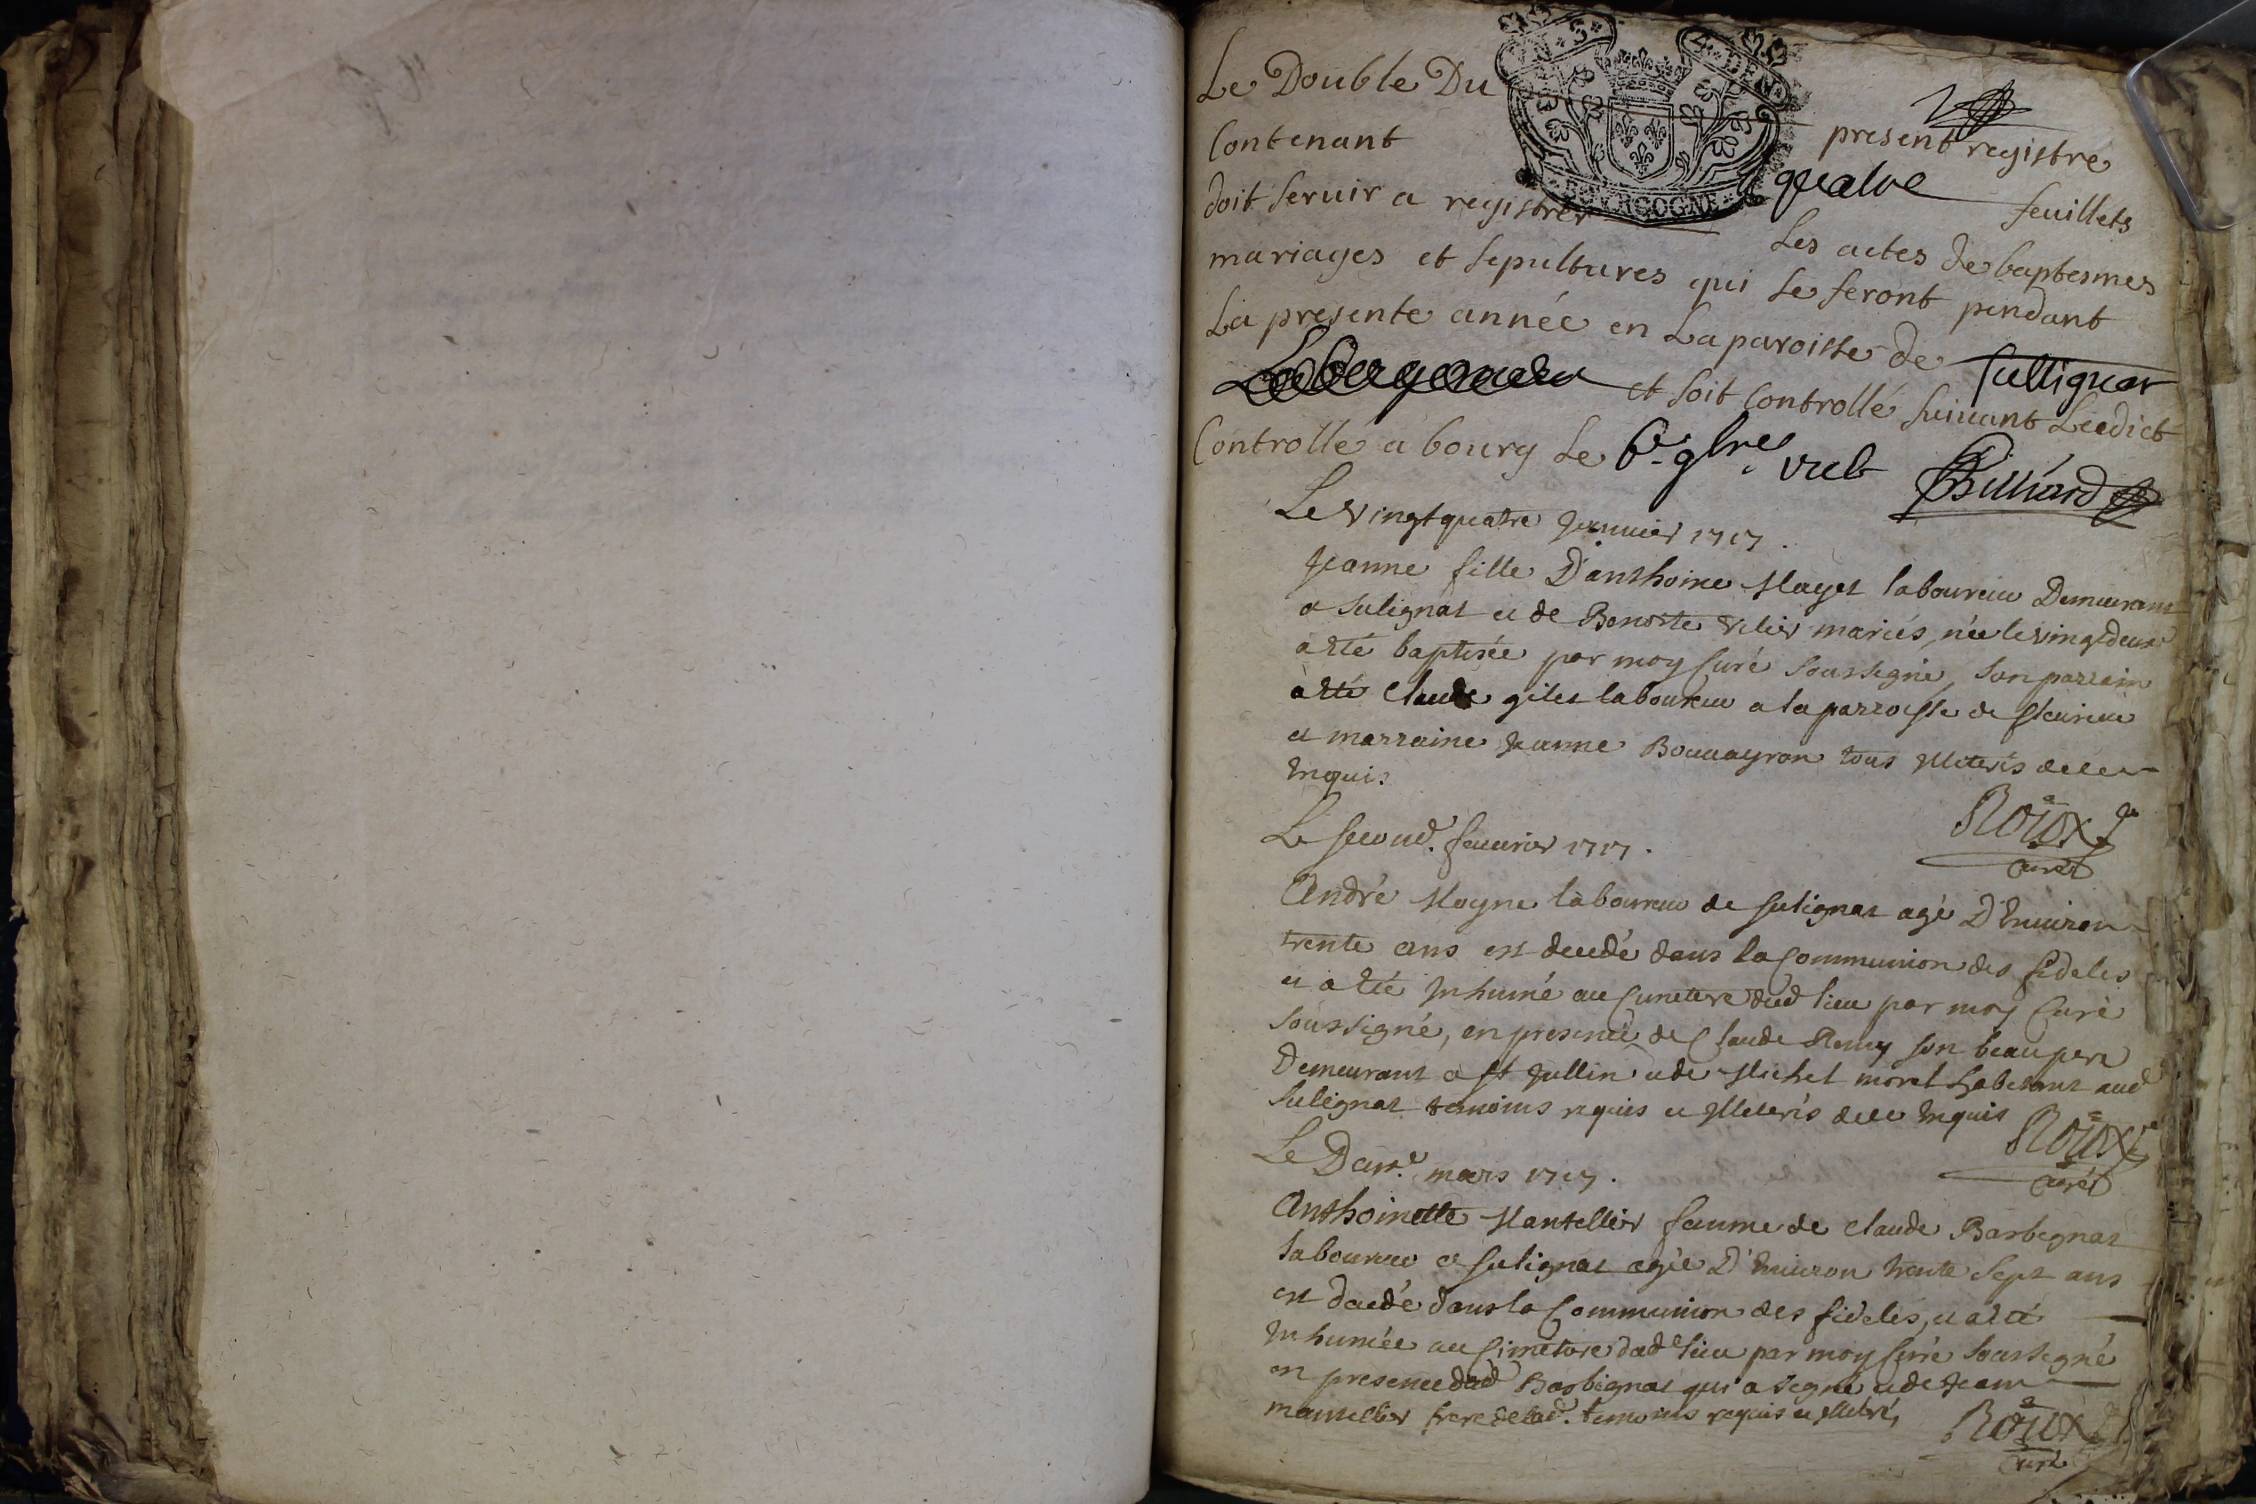 Le Double Du present registre
Contenant quatre feuillets
doit servir a registrer Les actes de baptesmes
mariages et sepultures qui se feront pendant
La presente année en La paroisse de Sullignat
et soit Controllé suivant Leedict
Controllé a bourg Le 6e 9bres Billiard
Le vingt quatre Januier 1717.
Jeanne fille D'anthoine Mayet laboureur Demeurant
a Sulignat et de Benoste velier mariés, née le vingt deux
a été baptisée par moy Curé soussigné, son parrain
a été Claude gilet laboureur a la parroisse de fleurieu
et marraine Jeanne Bouuayron tous illiterés de ce
enquis.
Roux
Curé
Le second. feuurier 1717.
André Moyne laboureur de Sulignat agé D'enuiron
trente ans est decedé dans la Communion des fideles
et a été Inhumé au Cimetere dud lieu par moy Curé
soussigné, en presence de Claude Remy son beau pere
Demeurant a St Jullin et de Michel morel habitant aud
Sulignat temoins requis et illiterés de ce enquis Roux
Curé
Le mars 1717.
Anthoinette Mantellier femme de Claude Barbignat
laboureur a Sulignat agée D'enuiron trente sept ans
est decedé dans la Communion des fideles, et a été
Inhumée au Cimetere dud lieu par moy Curé soussigné
en presence dud Barbignat qui a signé et de Jean
mantellier frere de lad. temoins requis et illiteré,
Roux
Curé